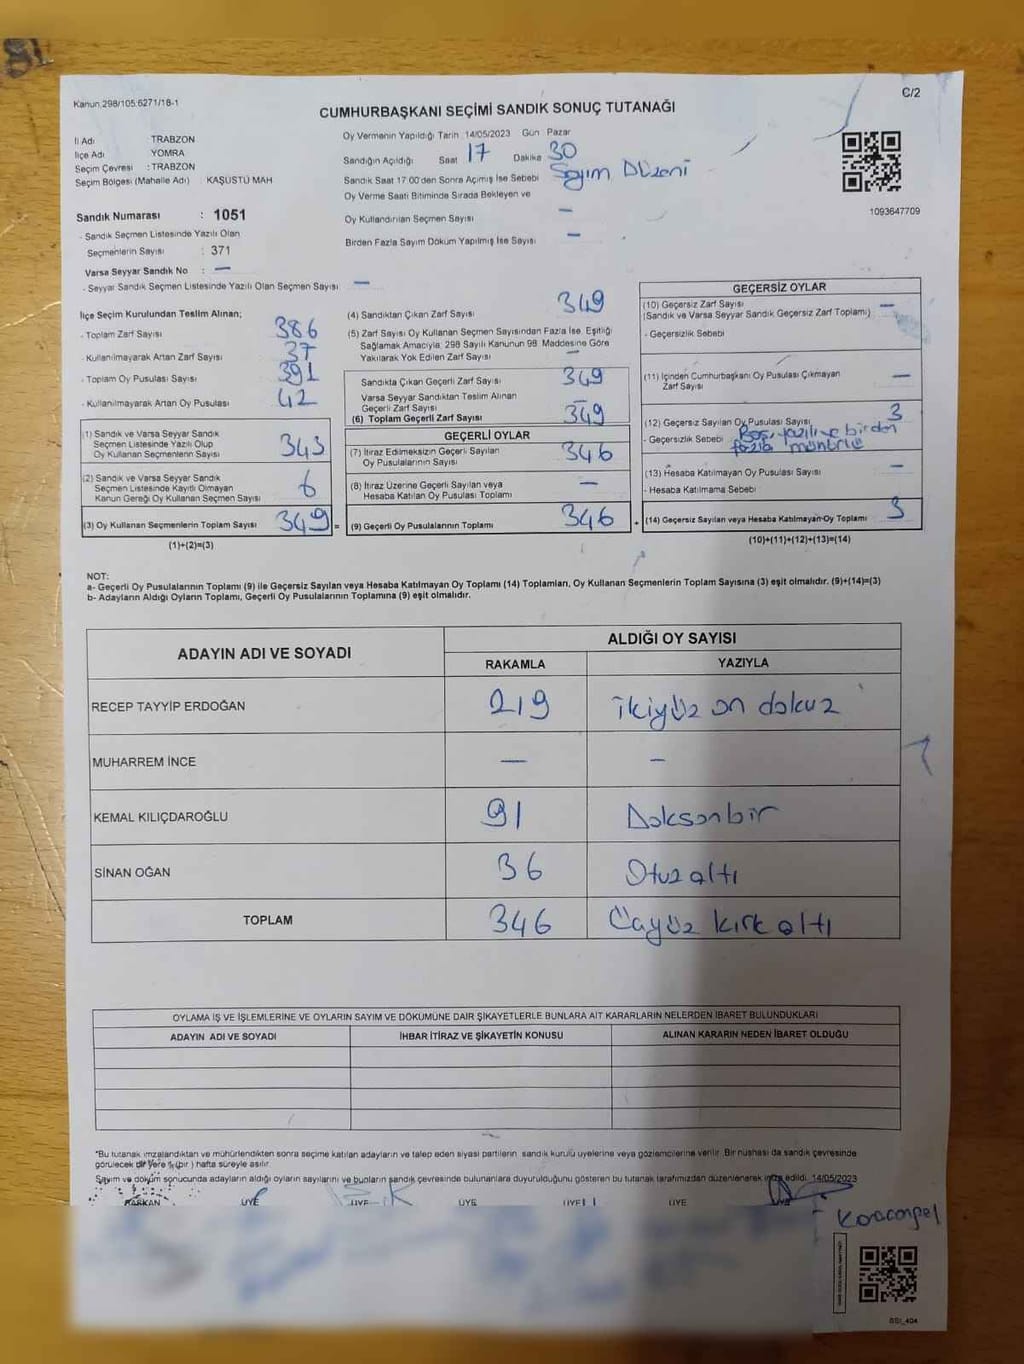 Kanun.298/105:6271/18-1
C/2
CUMHURBAŞKANI SEÇİMİ SANDIK SONUÇ TUTANAĞI
İl Adı TRABZON
İlçe Adı YOMRA
Seçim Çevresi : TRABZON
Seçim Bölgesi (Mahalle Adı) KAŞÜSTÜ MAH
Oy Vermenin Yapıldığı Tarih 14/05/2023 Gün Pazar
Sandığın Açıldığı Saat 17 Dakika 30
Sandık Saat 17:00'den Sonra Açımış İse Sebebi Sayım Düzeni
Oy Verme Saati Bitiminde Sırada Bekleyen ve
Oy Kullandırılan Seçmen Sayısı —
Birden Fazla Sayım Döküm Yapılmış İse Sayısı —
1093647709
Sandık Numarası : 1051
- Sandık Seçmen Listesinde Yazılı Olan
Seçmenlerin Sayısı : 371
Varsa Seyyar Sandık No : —
- Seyyar Sandık Seçmen Listesinde Yazılı Olan Seçmen Sayısı —
İlçe Seçim Kurulundan Teslim Alınan;
- Toplam Zarf Sayısı 386
- Kullanılmayarak Artan Zarf Sayısı 37
- Toplam Oy Pusulası Sayısı 391
- Kullanılmayarak Artan Oy Pusulası 42
(1) Sandık ve Varsa Seyyar Sandık
Seçmen Listesinde Yazılı Olup
Oy Kullanan Seçmenlerin Sayısı 343
(2) Sandık ve Varsa Seyyar Sandık
Seçmen Listesinde Kayıtlı Olmayan
Kanun Gereği Oy Kullanan Seçmen Sayısı 6
(3) Oy Kullanan Seçmenlerin Toplam Sayısı 349 =
(1)+(2)=(3)
(4) Sandıktan Çıkan Zarf Sayısı 349
(5) Zarf Sayısı Oy Kullanan Seçmen Sayısından Fazla İse, Eşitliği
Sağlamak Amacıyla, 298 Sayılı Kanunun 98. Maddesine Göre
Yakılarak Yok Edilen Zarf Sayısı —
Sandıkta Çıkan Geçerli Zarf Sayısı 349
Varsa Seyyar Sandıktan Teslim Alınan
Geçerli Zarf Sayısı —
(6) Toplam Geçerli Zarf Sayısı 349
GEÇERLİ OYLAR
(7) İtiraz Edilmeksizin Geçerli Sayılan
Oy Pusulalarının Sayısı 346
(8) İtiraz Üzerine Geçerli Sayılan veya
Hesaba Katılan Oy Pusulası Toplamı —
(9) Geçerli Oy Pusulalarının Toplamı 346 +
GEÇERSİZ OYLAR
(10) Geçersiz Zarf Sayısı —
(Sandık ve Varsa Seyyar Sandık Geçersiz Zarf Toplamı)
- Geçersizlik Sebebi
(11) İçinden Cumhurbaşkanı Oy Pusulası Çıkmayan
Zarf Sayısı —
(12) Geçersiz Sayılan Oy Pusulası Sayısı 3
- Geçersizlik Sebebi Boş, yazılı ve birden
fazla mühürlü
(13) Hesaba Katılmayan Oy Pusulası Sayısı —
- Hesaba Katılmama Sebebi
(14) Geçersiz Sayılan veya Hesaba Katılmayan Oy Toplamı 3
(10)+(11)+(12)+(13)=(14)
NOT:
a- Geçerli Oy Pusulalarının Toplamı (9) ile Geçersiz Sayılan veya Hesaba Katılmayan Oy Toplamı (14) Toplamları, Oy Kullanan Seçmenlerin Toplam Sayısına (3) eşit olmalıdır. (9)+(14)=(3)
b- Adayların Aldığı Oyların Toplamı, Geçerli Oy Pusulalarının Toplamına (9) eşit olmalıdır.
ADAYIN ADI VE SOYADI
ALDIĞI OY SAYISI
RAKAMLA YAZIYLA
RECEP TAYYİP ERDOĞAN 219 ikiyüz on dokuz
MUHARREM İNCE — —
KEMAL KILIÇDAROĞLU 91 Doksanbir
SİNAN OĞAN 36 Otuz altı
TOPLAM 346 Üçyüz kırk altı
OYLAMA İŞ VE İŞLEMLERİNE VE OYLARIN SAYIM VE DÖKÜMÜNE DAİR ŞİKAYETLERLE BUNLARA AİT KARARLARIN NELERDEN İBARET BULUNDUKLARI
ADAYIN ADI VE SOYADI İHBAR İTİRAZ VE ŞİKAYETİN KONUSU ALINAN KARARIN NEDEN İBARET OLDUĞU
*Bu tutanak imzalandıktan ve mühürlendikten sonra seçime katılan adayların ve talep eden siyasi partilerin sandık kurulu üyelerine veya gözlemcilerine verilir. Bir nüshası da sandık çevresinde
görülecek bir yere 1 (bir) hafta süreyle asılır.
Sayım ve döküm sonucunda adayların aldığı oyların sayılarını ve bunların sandık çevresinde bulunanlara duyurulduğunu gösteren bu tutanak tarafımızdan düzenlenerek imza edildi. 14/05/2023
BAŞKAN ÜYE ÜYE ÜYE ÜYE ÜYE ÜYE